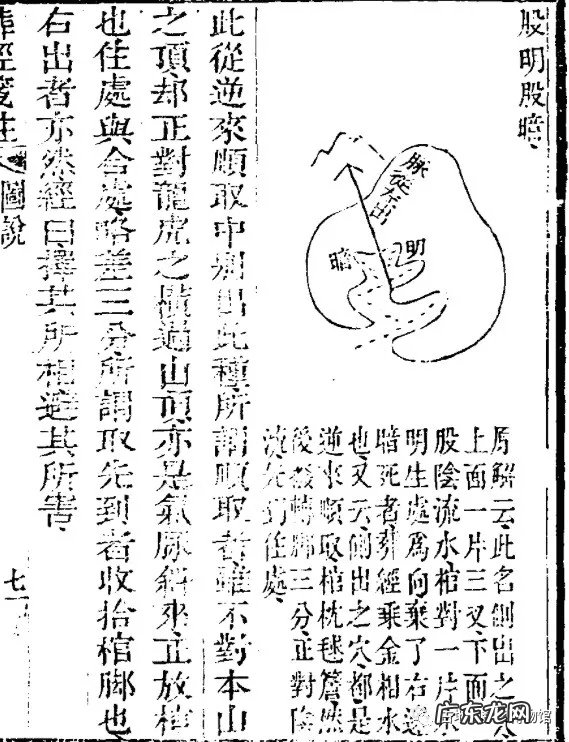 股明股暗
脉從左出
明
暗
云此名側出之
上面一片三叉下面
股陰流水棺對一片
明生處爲向棄了右邊
暗死者葬經乘金相水
也又云側出之穴都是
逆來順取棺枕毬簷然
後 轉脚三分正對陰
先到住處
此從逆來順取中別出此種所謂順取者雖不對本山
之頂却正對龍虎之橫過山頂亦是氣脉斜來正放棺
也住處與合處略差三分所謂取先到者收抬棺脚也
右出者亦然經曰擇其所相避其所害
葬經箋註 圖說 七
广东龙网